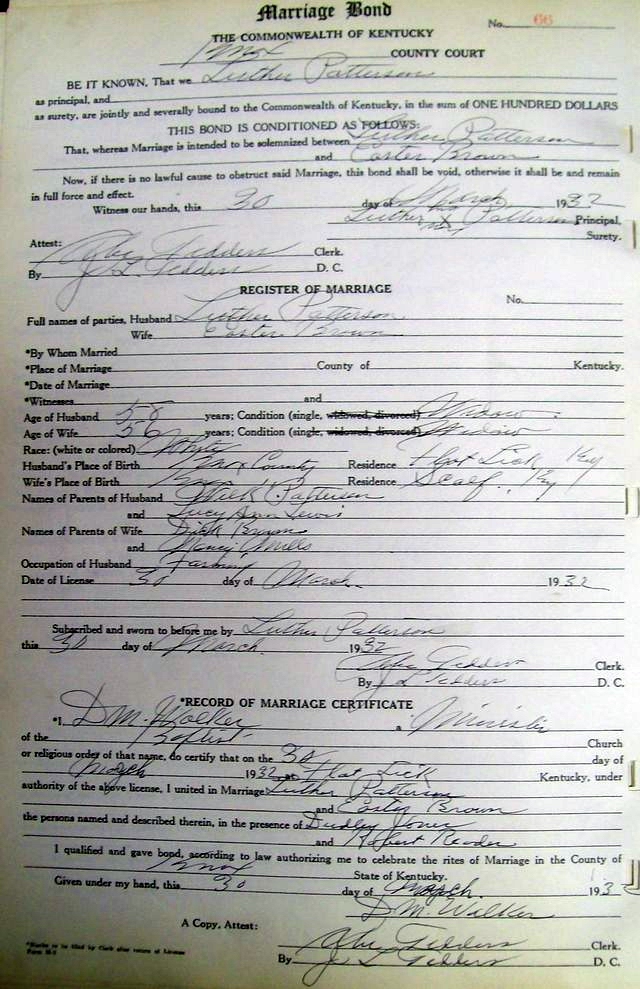 Marriage Bond
No. 66
THE COMMONWEALTH OF KENTUCKY
Knox COUNTY COURT
BE IT KNOWN, That we Luther Patterson
as principal, and
as surety, are jointly and severally bound to the Commonwealth of Kentucky, in the sum of ONE HUNDRED DOLLARS
THIS BOND IS CONDITIONED AS FOLLOWS:
That, whereas Marriage is intended to be solemnized between Luther Patterson
and Easter Brown
Now, if there is no lawful cause to obstruct said Marriage, this bond shall be void, otherwise it shall be and remain
in full force and effect.
Witness our hands, this 30 day of March 1932
Luther X Patterson Principal,
Surety.
Attest:
Abe Fedders Clerk.
By J. L. Fedders D. C.
REGISTER OF MARRIAGE
No.
Full names of parties, Husband Luther Patterson
Wife Easter Brown
*By Whom Married
*Place of Marriage County of Kentucky.
*Date of Marriage
*Witnesses and
Age of Husband 58 years; Condition (single, widowed, divorced) Widow
Age of Wife 56 years; Condition (single, widowed, divorced) Widow
Race: (white or colored) White
Husband's Place of Birth Knox County Residence Flat Lick Ky
Wife's Place of Birth Knox Residence Scalf, Ky
Names of Parents of Husband Wilk Patterson
and Lucy Ann Lewis
Names of Parents of Wife Dick Brown
and Nancy Mills
Occupation of Husband Farming
Date of License 30 day of March 1932
Subscribed and sworn to before me by Luther Patterson
this 30 day of March. 1932
Abe Fedders Clerk.
By J L Fedders D. C.
*RECORD OF MARRIAGE CERTIFICATE
*I, D.M. Walker a Minister
of the Baptist Church
or religious order of that name, do certify that on the 30 day of
March 1932 at Flat Lick Kentucky, under
authority of the above license, I united in Marriage Luther Patterson
and Easter Brown
the persons named and described therein, in the presence of Dudley Jones
and Robert Reader
I qualified and gave bond, according to law authorizing me to celebrate the rites of Marriage in the County of
Knox State of Kentucky.
Given under my hand, this 30 day of March. 193
D.M. Walker
A Copy, Attest:
Abe Fedders Clerk.
By J L Fedders D. C.
*Blanks to be filled by Clerk after return of License